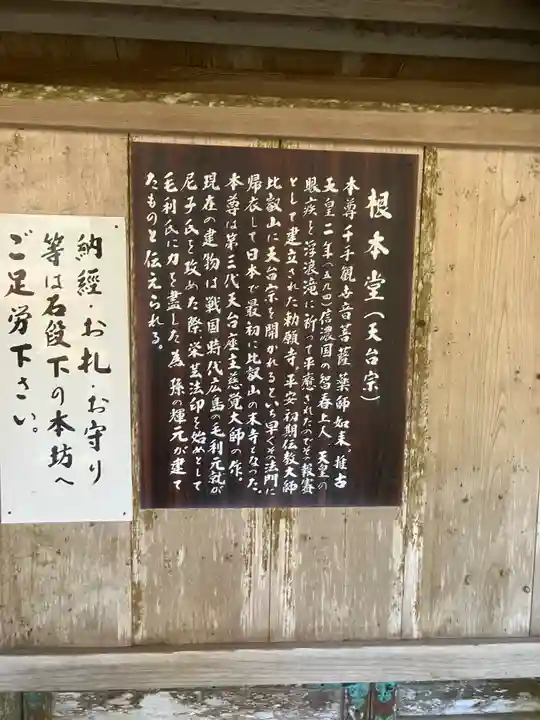 根本堂(天台宗)
本尊千手観世音菩薩薬師如来。推古
天皇二年(五九四)信濃国の智春上人、天皇の
眼疾を浮浪滝に祈って平癒されたのでその報賽
として建立された勅願寺。平安初期伝教大師
比叡山に天台宗を開かれるといち早くその法門に
帰依して日本で最初に比叡山の末寺となった。
本尊は第三代天台座主慈覚大師の作。
現在の建物は戦国時代広島の毛利元就が
尼子氏を攻めた際栄芸法印を始めとして
毛利氏に力を盡した為孫の輝元が建て
たものと伝えられる。
納經・お札・お守り
等は石段下の本坊へ
ご足労下さい。